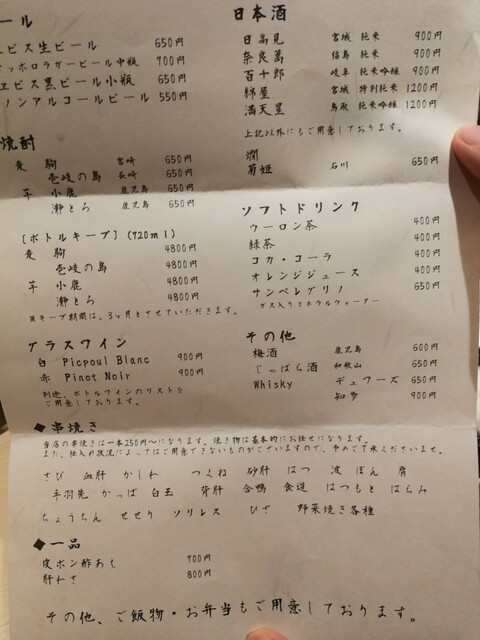 ール
ヱビス生ビール 650円
サッポロラガービール中瓶 700円
ヱビス黒ビール小瓶 650円
ノンアルコールビール 550円
日本酒
日高見 宮城 純米 900円
奈良萬 福島 純米 900円
百十郎 岐阜 純米吟醸 900円
綿屋 宮城 特別純米 1200円
満天星 鳥取 純米吟醸 1200円
上記以外にもご用意しております。
燗
菊姫 石川 650円
焼酎
麦 駒 宮崎 650円
壱岐の島 長崎 650円
芋 小鹿 鹿児島 650円
瀞とろ 鹿児島 650円
(ボトルキープ)(720ml)
麦 駒 4800円
壱岐の島 4800円
芋 小鹿 4800円
瀞とろ 4800円
※キープ期間は、3ヶ月とさせていただきます。
ソフトドリンク
ウーロン茶 400円
緑茶 400円
コカ・コーラ 400円
オレンジジュース 400円
サンペレグリノ 650円
ガス入りミネラルウォーター
グラスワイン
白 Picpoul Blanc 900円
赤 Pinot Noir 900円
別途、ボトルワインのリストを
ご用意しております。
その他
梅酒 鹿児島 600円
じゃばら酒 和歌山 650円
Whisky デュワーズ 650円
知多 900円
◆串焼き
当店の串焼きは一本250円〜になります。焼き物は基本的にお任せになります。
また、仕入れ状況によってはご用意できないものがございますので、予めご了承くださいませ。
さび 血肝 かしわ つくね 砂肝 はつ 波 ぼん 肩
手羽先 かっぱ 白玉 背肝 合鴨 食道 はつもと はらみ
ちょうちん せせり ソリレス ひざ 野菜焼き各種
◆一品
皮ポン酢あえ 700円
肝わさ 800円
その他、ご飯物・お弁当もご用意しております。